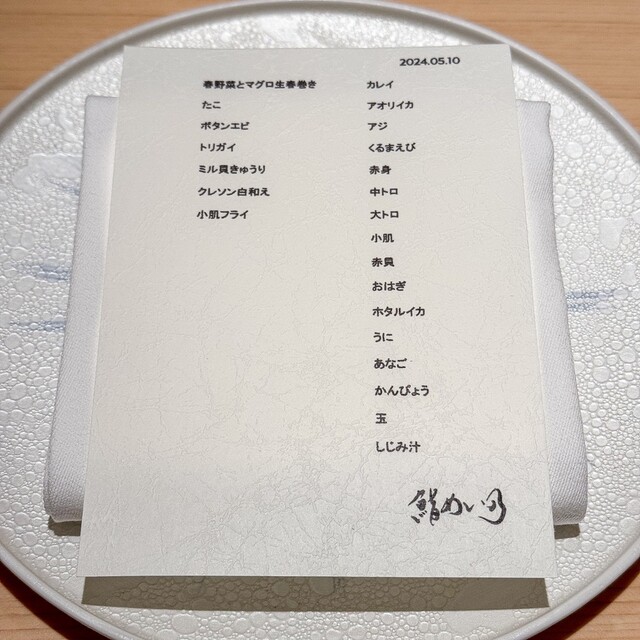 2024.05.10
春野菜とマグロ生春巻き
たこ
ボタンエビ
トリガイ
ミル貝きゅうり
クレソン白和え
小肌フライ
カレイ
アオリイカ
アジ
くるまえび
赤身
中トロ
大トロ
小肌
赤貝
おはぎ
ホタルイカ
うに
あなご
かんぴょう
玉
しじみ汁
鮨めい乃